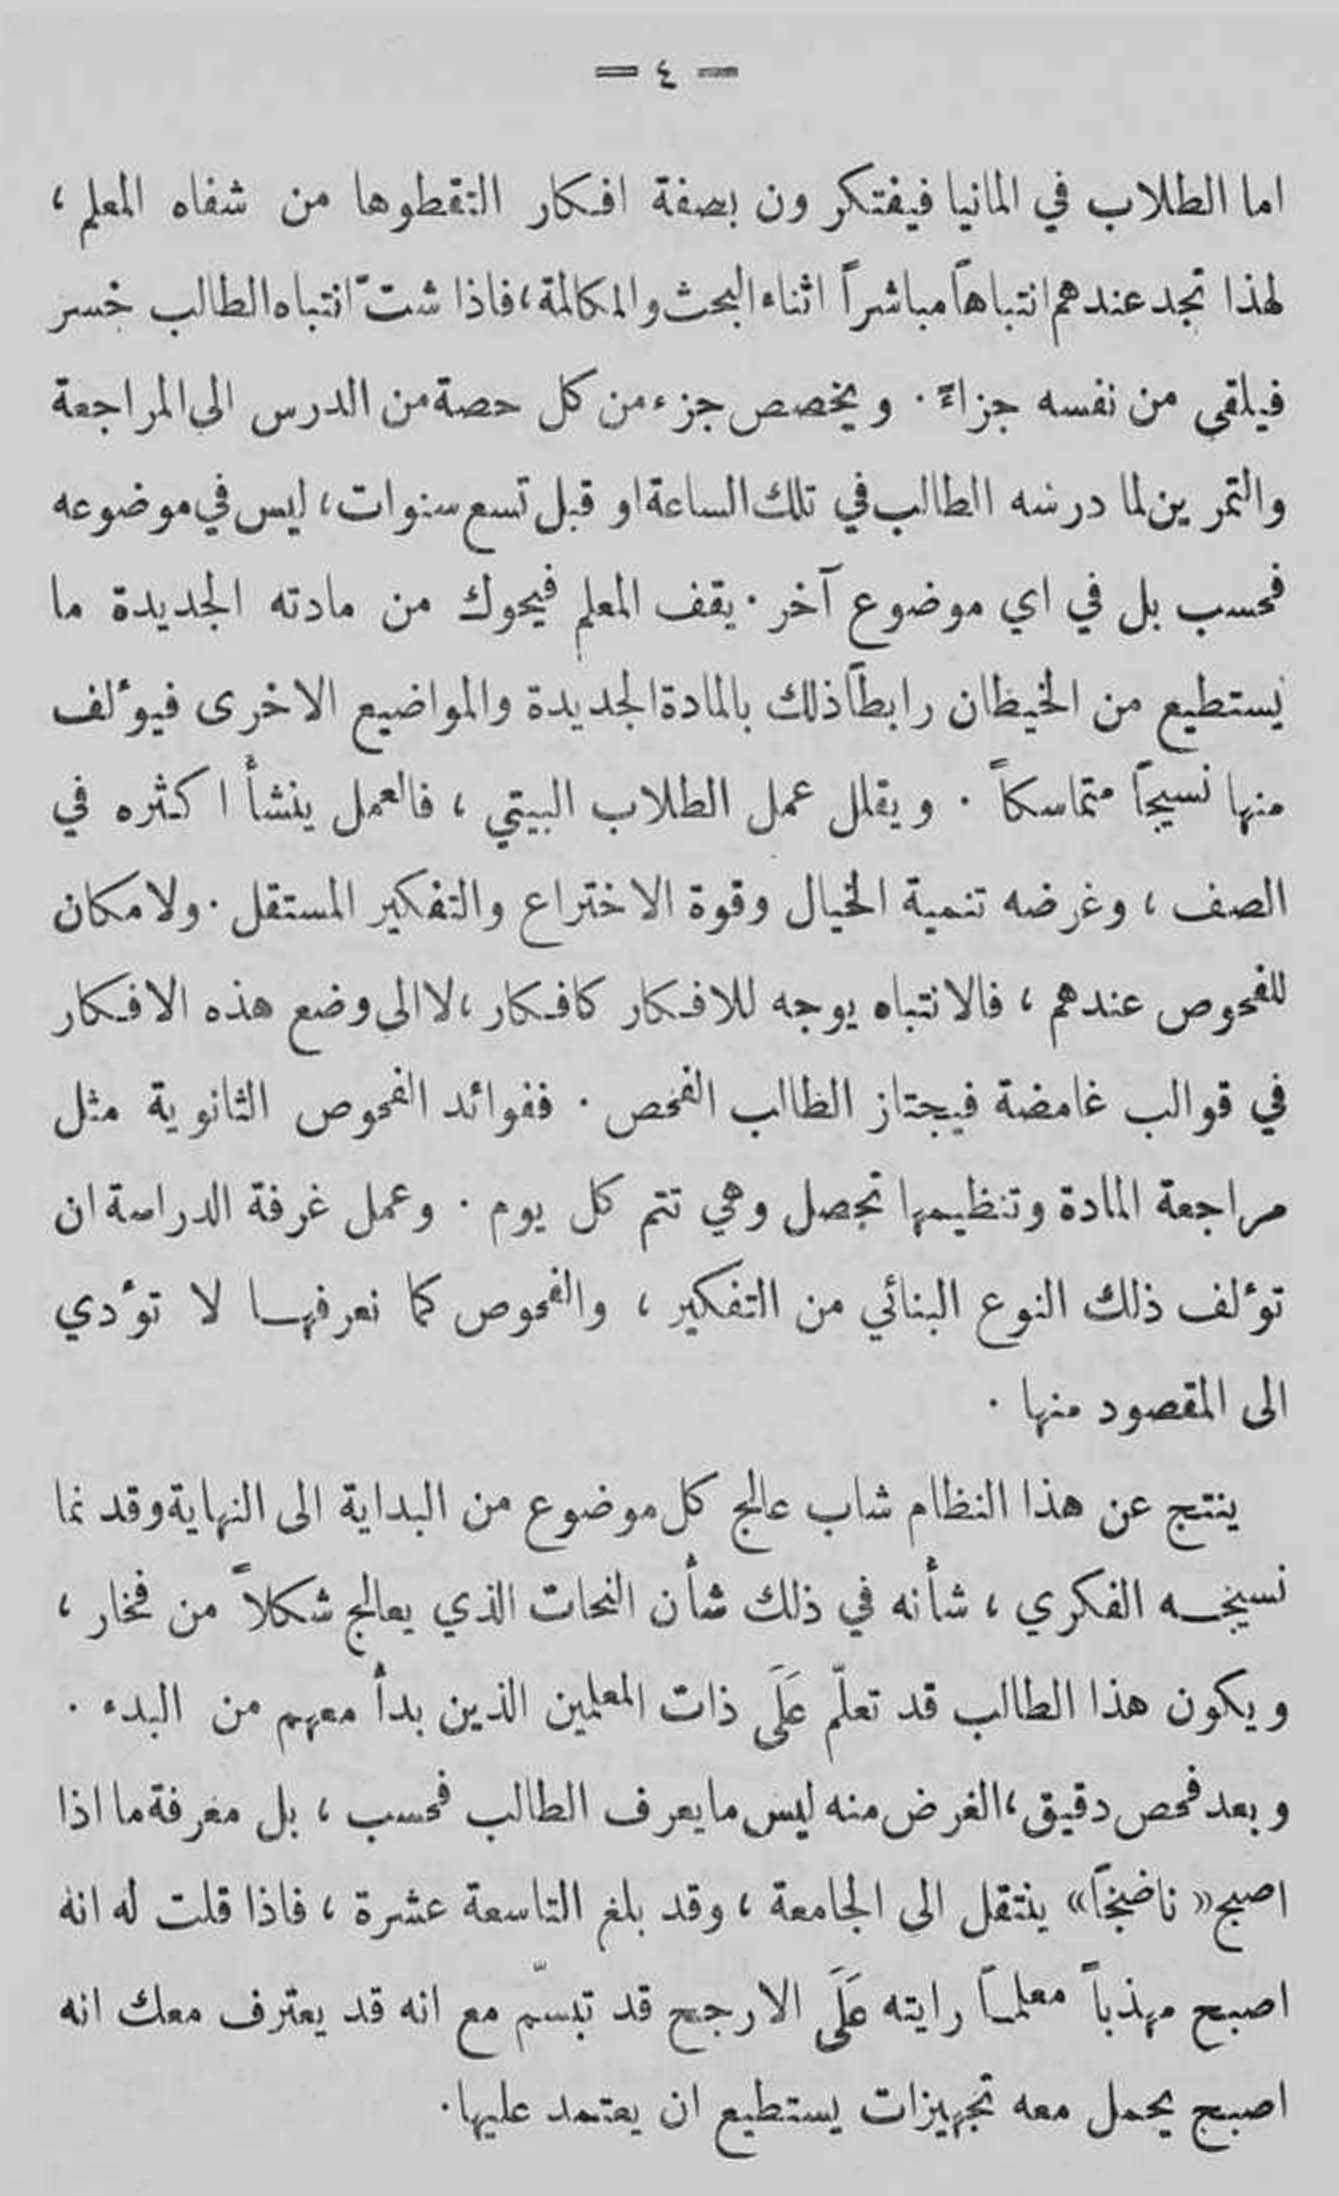 — ٤ —
اما الطلاب في المانيا فيفتكرون بصفة افكار التقطوها من شفاه المعلم ،
لهذا تجد عندهم انتباهاً مباشراً اثناء البحث والمكالمة ، فاذا شتّ انتباه الطالب خسر
فيلقى من نفسه جزاءً . ويخصص جزء من كل حصة من الدرس الى المراجعة
والتمرين لما درسه الطالب في تلك الساعة او قبل تسع سنوات ، ليس في موضوعه
فحسب بل في اي موضوع آخر . يقف المعلم فيحوك من مادته الجديدة ما
يستطيع من الخيطان رابطاً ذلك بالمادة الجديدة والمواضيع الاخرى فيؤلف
منها نسيجاً متماسكاً . ويقلل عمل الطلاب البيتي ، فالعمل ينشأ اكثره في
الصف ، وغرضه تنمية الخيال وقوة الاختراع والتفكير المستقل . ولا مكان
للفحوص عندهم ، فالانتباه يوجه للافكار كافكار ، لا الى وضع هذه الافكار
في قوالب غامضة فيجتاز الطالب الفحص . ففوائد الفحوص الثانوية مثل
مراجعة المادة وتنظيمها تحصل وهي تتم كل يوم . وعمل غرفة الدراسة ان
تؤلف ذلك النوع البنائي من التفكير ، والفحوص كما نعرفهـا لا تؤدي
الى المقصود منها .
ينتج عن هذا النظام شاب عالج كل موضوع من البداية الى النهاية وقد نما
نسيجـه الفكري ، شأنه في ذلك شأن النحات الذي يعالج شكلاً من فخار ،
ويكون هذا الطالب قد تعلّم عَلَى ذات المعلمين الذين بدأ معهم من البدء .
وبعد فحص دقيق ، الغرض منه ليس ما يعرف الطالب فحسب ، بل معرفة ما اذا
اصبح « ناضجاً » ينتقل الى الجامعة ، وقد بلغ التاسعة عشرة ، فاذا قلت له انه
اصبح مهذباً معلمـاً رايته عَلَى الارجح قد تبسّم مع انه قد يعترف معك انه
اصبح يحمل معه تجهيزات يستطيع ان يعتمد عليها .